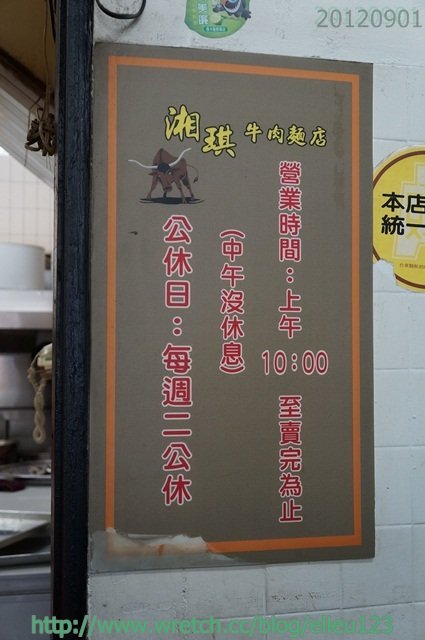 20120901
湘琪牛肉麵店
營業時間：上午10：00 至賣完為止
(中午沒休息)
公休日：每週二公休
本店
統一
http://www.wretch.cc/blog/elleu123